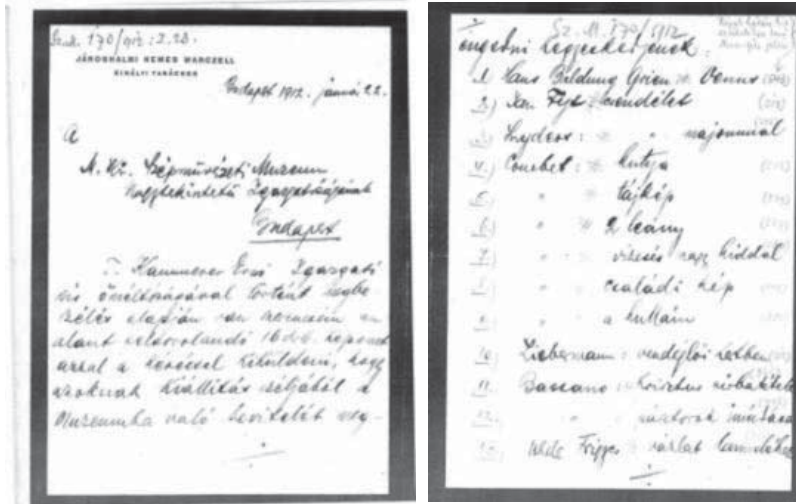 170/912
JÁNOSHALMI NEMES MARCZELL
KIRÁLYI TANÁCSOS
Budapest 1912. január 22.
A
M. Kir. Szépművészeti Muzeum
Nagytekintetű Igazgatóságának
Budapest
Kammerer Ernő Igazgató
úr őméltóságával történt megbe-
szélés alapján van szerencsém az
alant felsorolandó 16 db. képemet
azzal a kéréssel kiküldeni, hogy
azoknak kiállítás céljából a
Muzeumba való bevitelét meg-
Sz. M. 170/1912
engedni kegyeskedjenek:
1. Hans Baldung Grien Venus
2.) Jan Fyt: csendélet
3.) Snyders: " majommal
4.) Courbet: kutya
5.) " tájkép
6.) " 2 leány
7.) " vizesés nagy hiddal
8.) " családi kép
9.) " a hullám
10.) Liebermann: vendéglői kertben
11.) Bassano: Krisztus sirbatétele
12.) " pásztorok imádása
13.) Uhde Frigyes: vázlat